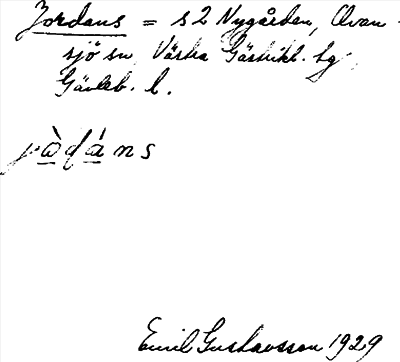 Jordans = s 2 Nygården, Ovan-
sjö sn, Västra Gästrikl. tg
Gävleb. l.
jò̱dá̱ns
Emil Gustavsson 1929